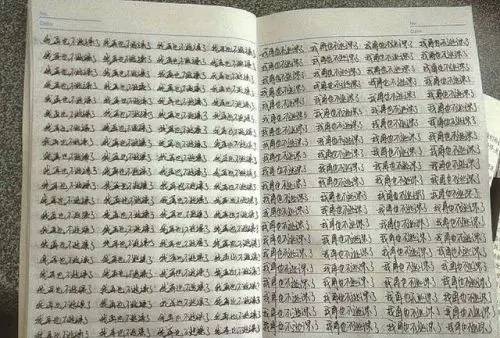 No.
Date
我再也不逃课了 我再也不逃课了 我再也不逃课了 我再也不逃课了
我再也不逃课了 我再也不逃课了 我再也不逃课了 我再也不逃课了
我再也不逃课了 我再也不逃课了 我再也不逃课了 我再也不逃课了
我再也不逃课了 我再也不逃课了 我再也不逃课了 我再也不逃课了
我再也不逃课了 我再也不逃课了 我再也不逃课了 我再也不逃课了
我再也不逃课了 我再也不逃课了 我再也不逃课了 我再也不逃课了
我再也不逃课了 我再也不逃课了 我再也不逃课了 我再也不逃课了
我再也不逃课了 我再也不逃课了 我再也不逃课了 我再也不逃课了
我再也不逃课了 我再也不逃课了 我再也不逃课了 我再也不逃课了
我再也不逃课了 我再也不逃课了 我再也不逃课了 我再也不逃课了
我再也不逃课了 我再也不逃课了 我再也不逃课了 我再也不逃课了
我再也不逃课了 我再也不逃课了 我再也不逃课了 我再也不逃课了
我再也不逃课了 我再也不逃课了 我再也不逃课了 我再也不逃课了
我再也不逃课了 我再也不逃课了 我再也不逃课了 我再也不逃课了
我再也不逃课了 我再也不逃课了 我再也不逃课了 我再也不逃课了
我再也不逃课了 我再也不逃课了 我再也不逃课了 我再也不逃课了
我再也不逃课了 我再也不逃课了 我再也不逃课了 我再也不逃课了
我再也不逃课了 我再也不逃课了 我再也不逃课了 我再也不逃课了
我再也不逃课了 我再也不逃课了 我再也不逃课了 我再也不逃课了
我再也不逃课了 我再也不逃课了 我再也不逃课了 我再也不逃课了
我再也不逃课了 我再也不逃课了 我再也不逃课了 我再也不逃课了
No.
Date
我再也不逃课了 我再也不逃课了 我再也不逃课了 我再也不逃课了
我再也不逃课了 我再也不逃课了 我再也不逃课了 我再也不逃课了
我再也不逃课了 我再也不逃课了 我再也不逃课了 我再也不逃课了
我再也不逃课了 我再也不逃课了 我再也不逃课了 我再也不逃课了
我再也不逃课了 我再也不逃课了 我再也不逃课了 我再也不逃课了
我再也不逃课了 我再也不逃课了 我再也不逃课了 我再也不逃课了
我再也不逃课了 我再也不逃课了 我再也不逃课了 我再也不逃课了
我再也不逃课了 我再也不逃课了 我再也不逃课了 我再也不逃课了
我再也不逃课了 我再也不逃课了 我再也不逃课了 我再也不逃课了
我再也不逃课了 我再也不逃课了 我再也不逃课了 我再也不逃课了
我再也不逃课了 我再也不逃课了 我再也不逃课了 我再也不逃课了
我再也不逃课了 我再也不逃课了 我再也不逃课了 我再也不逃课了
我再也不逃课了 我再也不逃课了 我再也不逃课了 我再也不逃课了
我再也不逃课了 我再也不逃课了 我再也不逃课了 我再也不逃课了
我再也不逃课了 我再也不逃课了 我再也不逃课了 我再也不逃课了
我再也不逃课了 我再也不逃课了 我再也不逃课了 我再也不逃课了
我再也不逃课了 我再也不逃课了 我再也不逃课了 我再也不逃课了
我再也不逃课了 我再也不逃课了 我再也不逃课了 我再也不逃课了
我再也不逃课了 我再也不逃课了 我再也不逃课了 我再也不逃课了
我再也不逃课了 我再也不逃课了 我再也不逃课了 我再也不逃课了